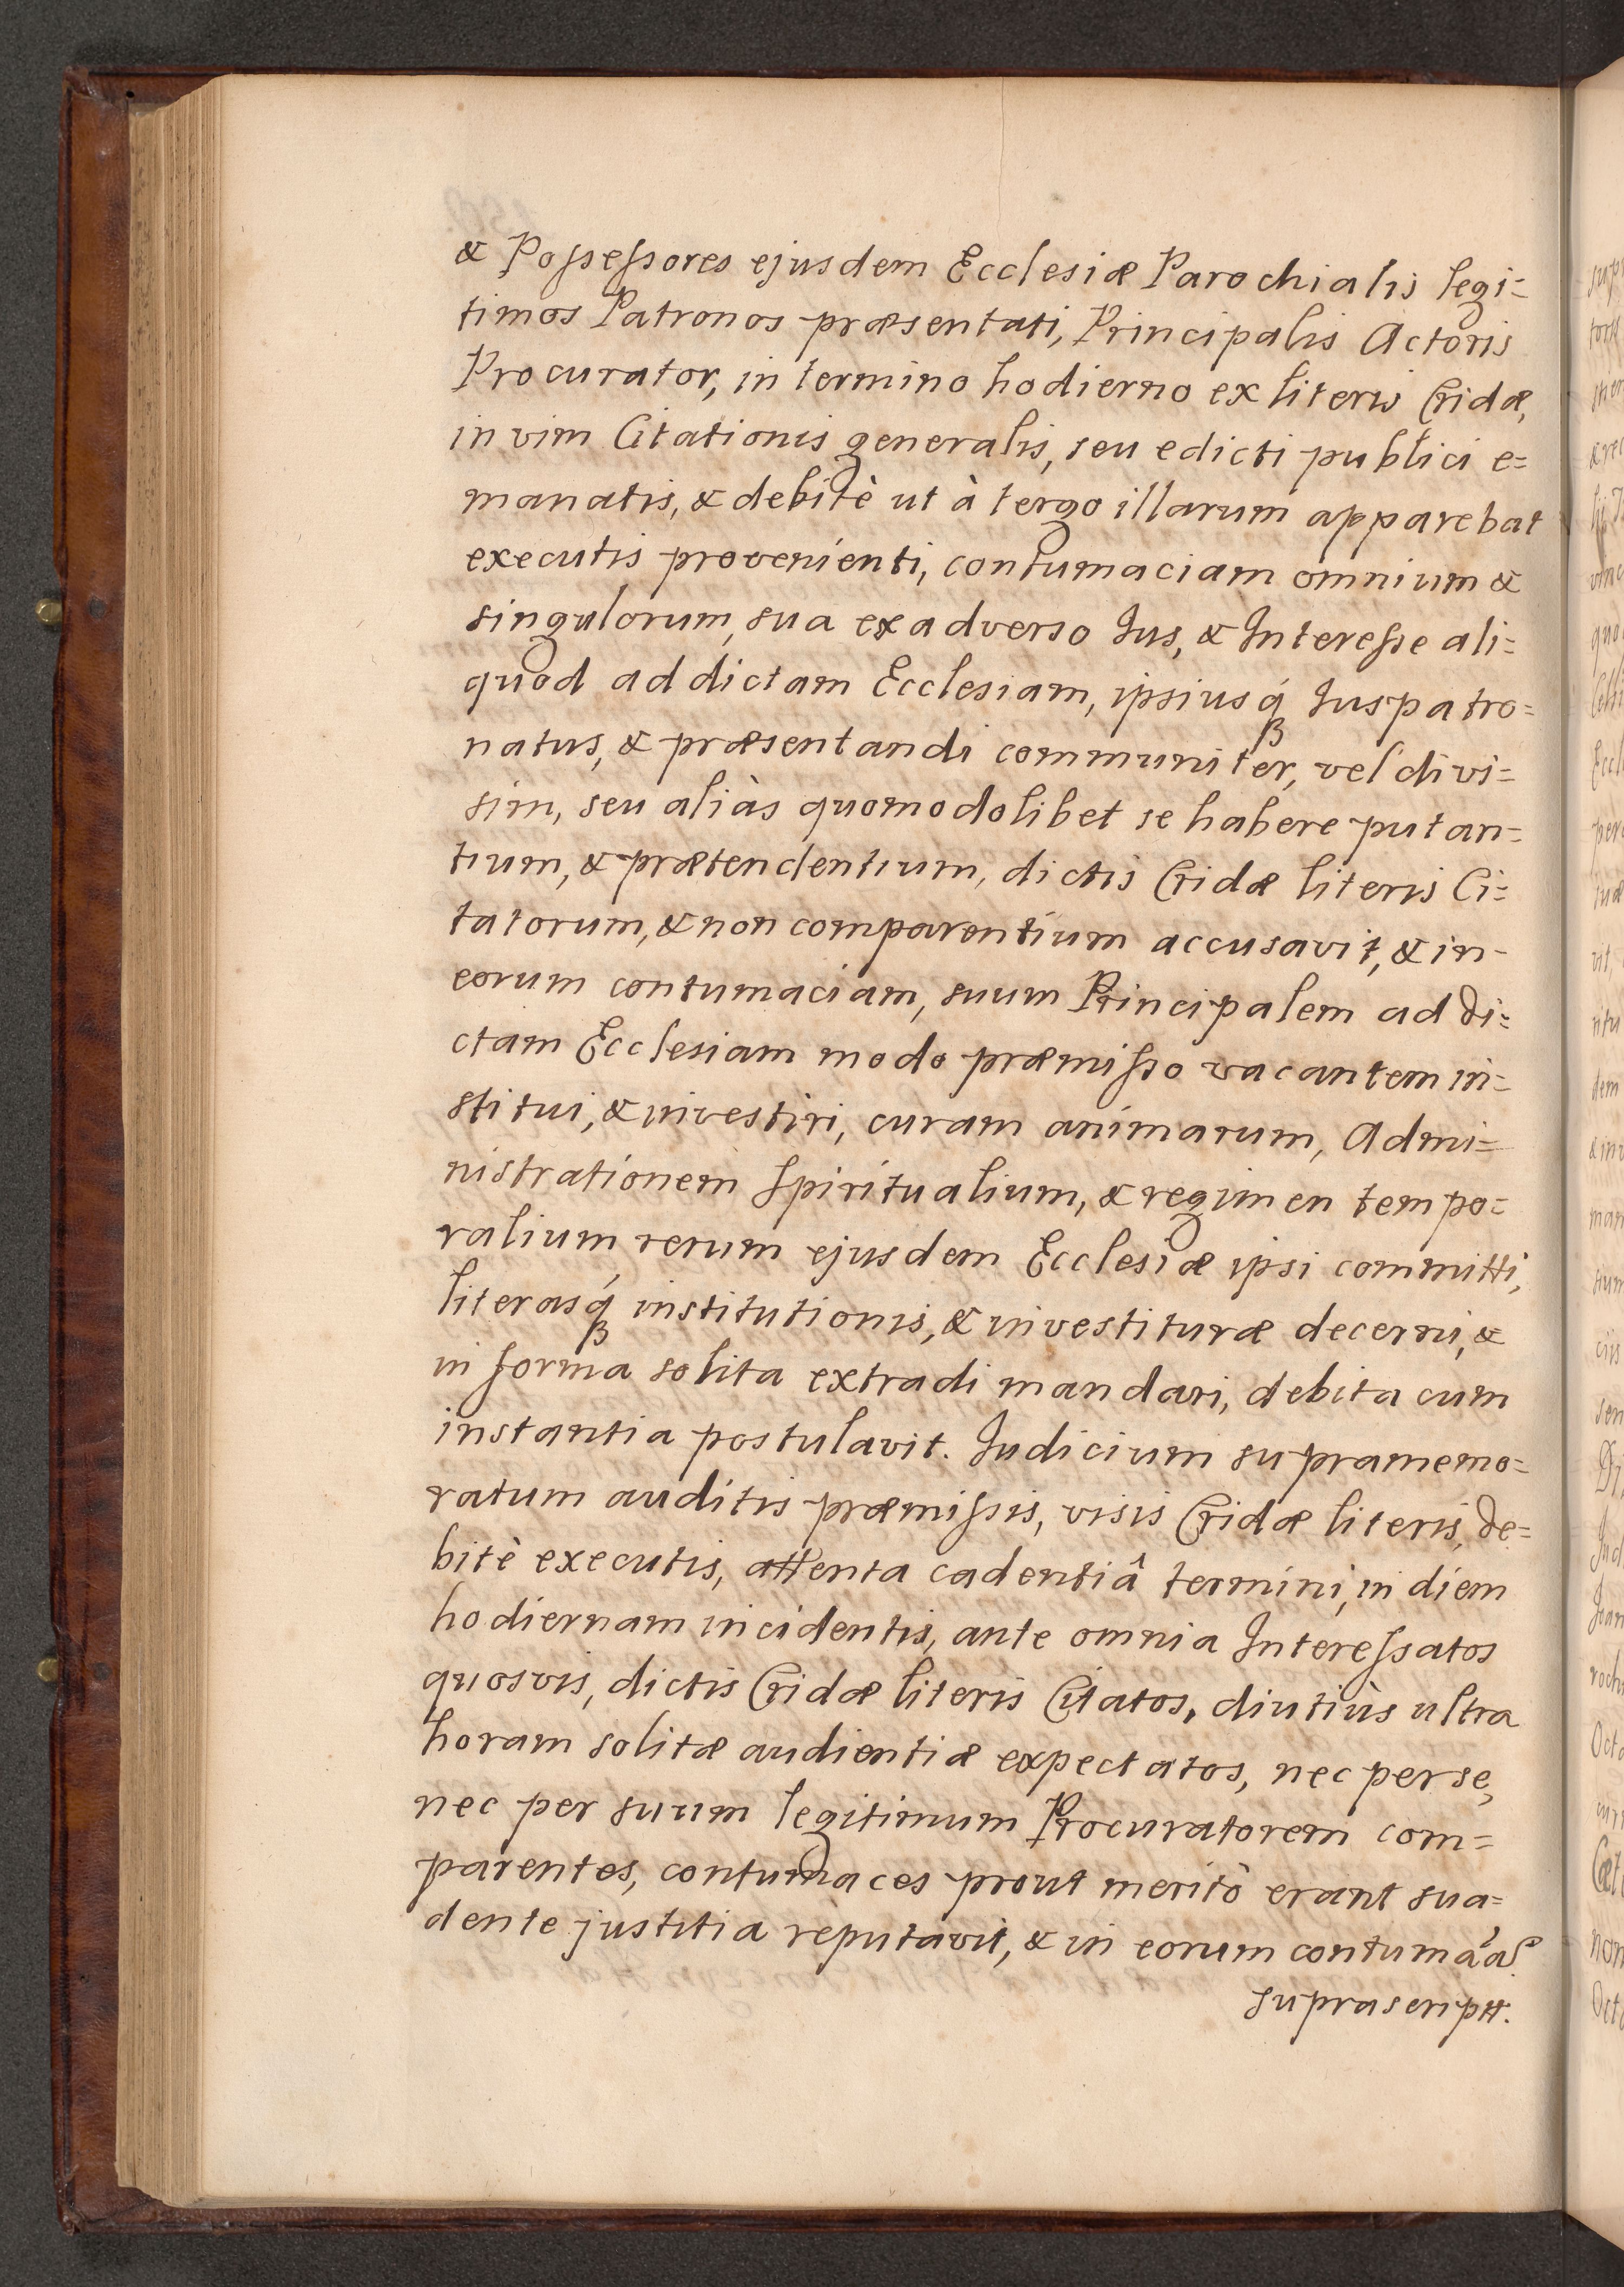 & Possessores ejusdem Ecclesiæ Parochialis legi=
timos Patronos præsentati, Principalis Actoris
Procurator, in termino hodierno ex literis Cridæ,
in vim Citationis generalis, seu edicti publici e=
manatis, & debitè ut à tergo illarum apparebat
executis provenienti, contumaciam omnium &
singulorum, sua ex adverso Jus, & Interesse ali=
quod ad dictam Ecclesiam, ipsiusq́ꝫ Juspatro=
natus, & præsentandi communiter, vel divi=
sim, seu aliàs quomodolibet se habere putan=
tium, & prætendentium, dictis Cridæ literis Ci=
tatorum, & non comparentium accusavit, & in-
eorum contumaciam, suum Principalem ad di=
ctam Ecclesiam modo præmisso vacantem in=
stitui, & investiri, curam animarum, Admi=
nistrationem spiritualium, & regimen tempo=
ralium rerum ejusdem Ecclesiæ ipsi committi,
literasq́ꝫ institutionis, & investituræ decerni, &
in forma solita extradi mandari, debita cum
instantia postulavit. Judicium supramemo=
ratum auditis præmissis, visis Cridæ literis, de=
bitè executis, attenta cadentiâ termini, in diem
hodiernam incidentis, ante omnia Interessatos
quosvis, dictis Cridæ literis Citatos, diutiùs ultra
horam solitæ audientiæ expectatos, nec per se,
nec per suum legitimum Procuratorem com=
parentes, contumaces prout meritò erant sua=
dente justitia reputavit, & in eorum
suprascriptt.